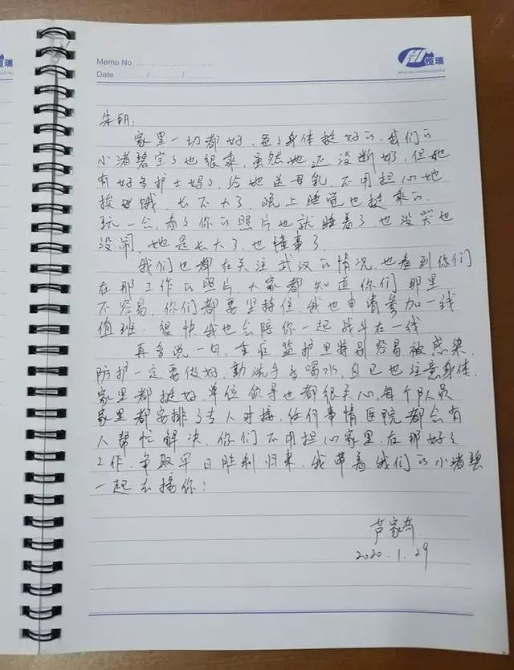 Memo No
Date / /
恒瑞
朱玥:
家里一切都好,爸妈身体挺好的,我们的
小渚碧宝宝也很乖,虽然她还没断奶,但她
有好多护士妈妈给她送母乳,不用担心她
挨饿,长不大了,晚上睡觉也挺乖的
玩一会,看了你的照片也就睡着了,也没哭也
没闹,她是长大了,也懂事了。
我们也都在关注武汉的情况,也看到你们
在那工作的照片,大家都知道你们那里
不容易,你们都要坚持住,我也申请参加一线
值班,很快我也会陪你一起战斗在一线
再多说一句,重症监护里特别容易被感染,
防护一定要做好,勤洗手多喝水,自己也注意身体,
家里都挺好,单位领导也都很关心每个队员
家里都安排了专人对接,任何事情医院都会有
人帮忙解决,你们不用担心家里,在那好好
工作,争取早日胜利归来,我带着我们的小渚碧
一起去接你!
芦家奇
2020.1.29